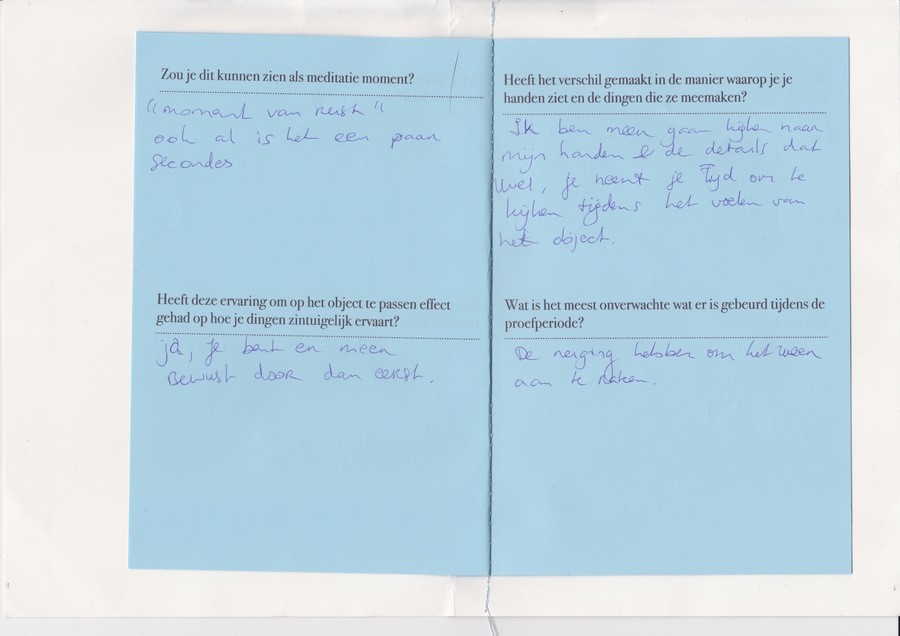 Zou je dit kunnen zien als meditatie moment?
"moment van rust"
ook al is het een paar
secondes.
Heeft deze ervaring om op het object te passen effect
gehad op hoe je dingen zintuigelijk ervaart?
ja, je bent er meer
Bewust door dan eerst.
Heeft het verschil gemaakt in de manier waarop je je
handen ziet en de dingen die ze meemaken?
Ik ben meer gaan kijken naar
mijn handen & de details dat
wel, je neemt je Tijd om te
kijken tijdens het voelen van
het object.
Wat is het meest onverwachte wat er is gebeurd tijdens de
proefperiode?
De neiging hebben om het weer
aan te raken.